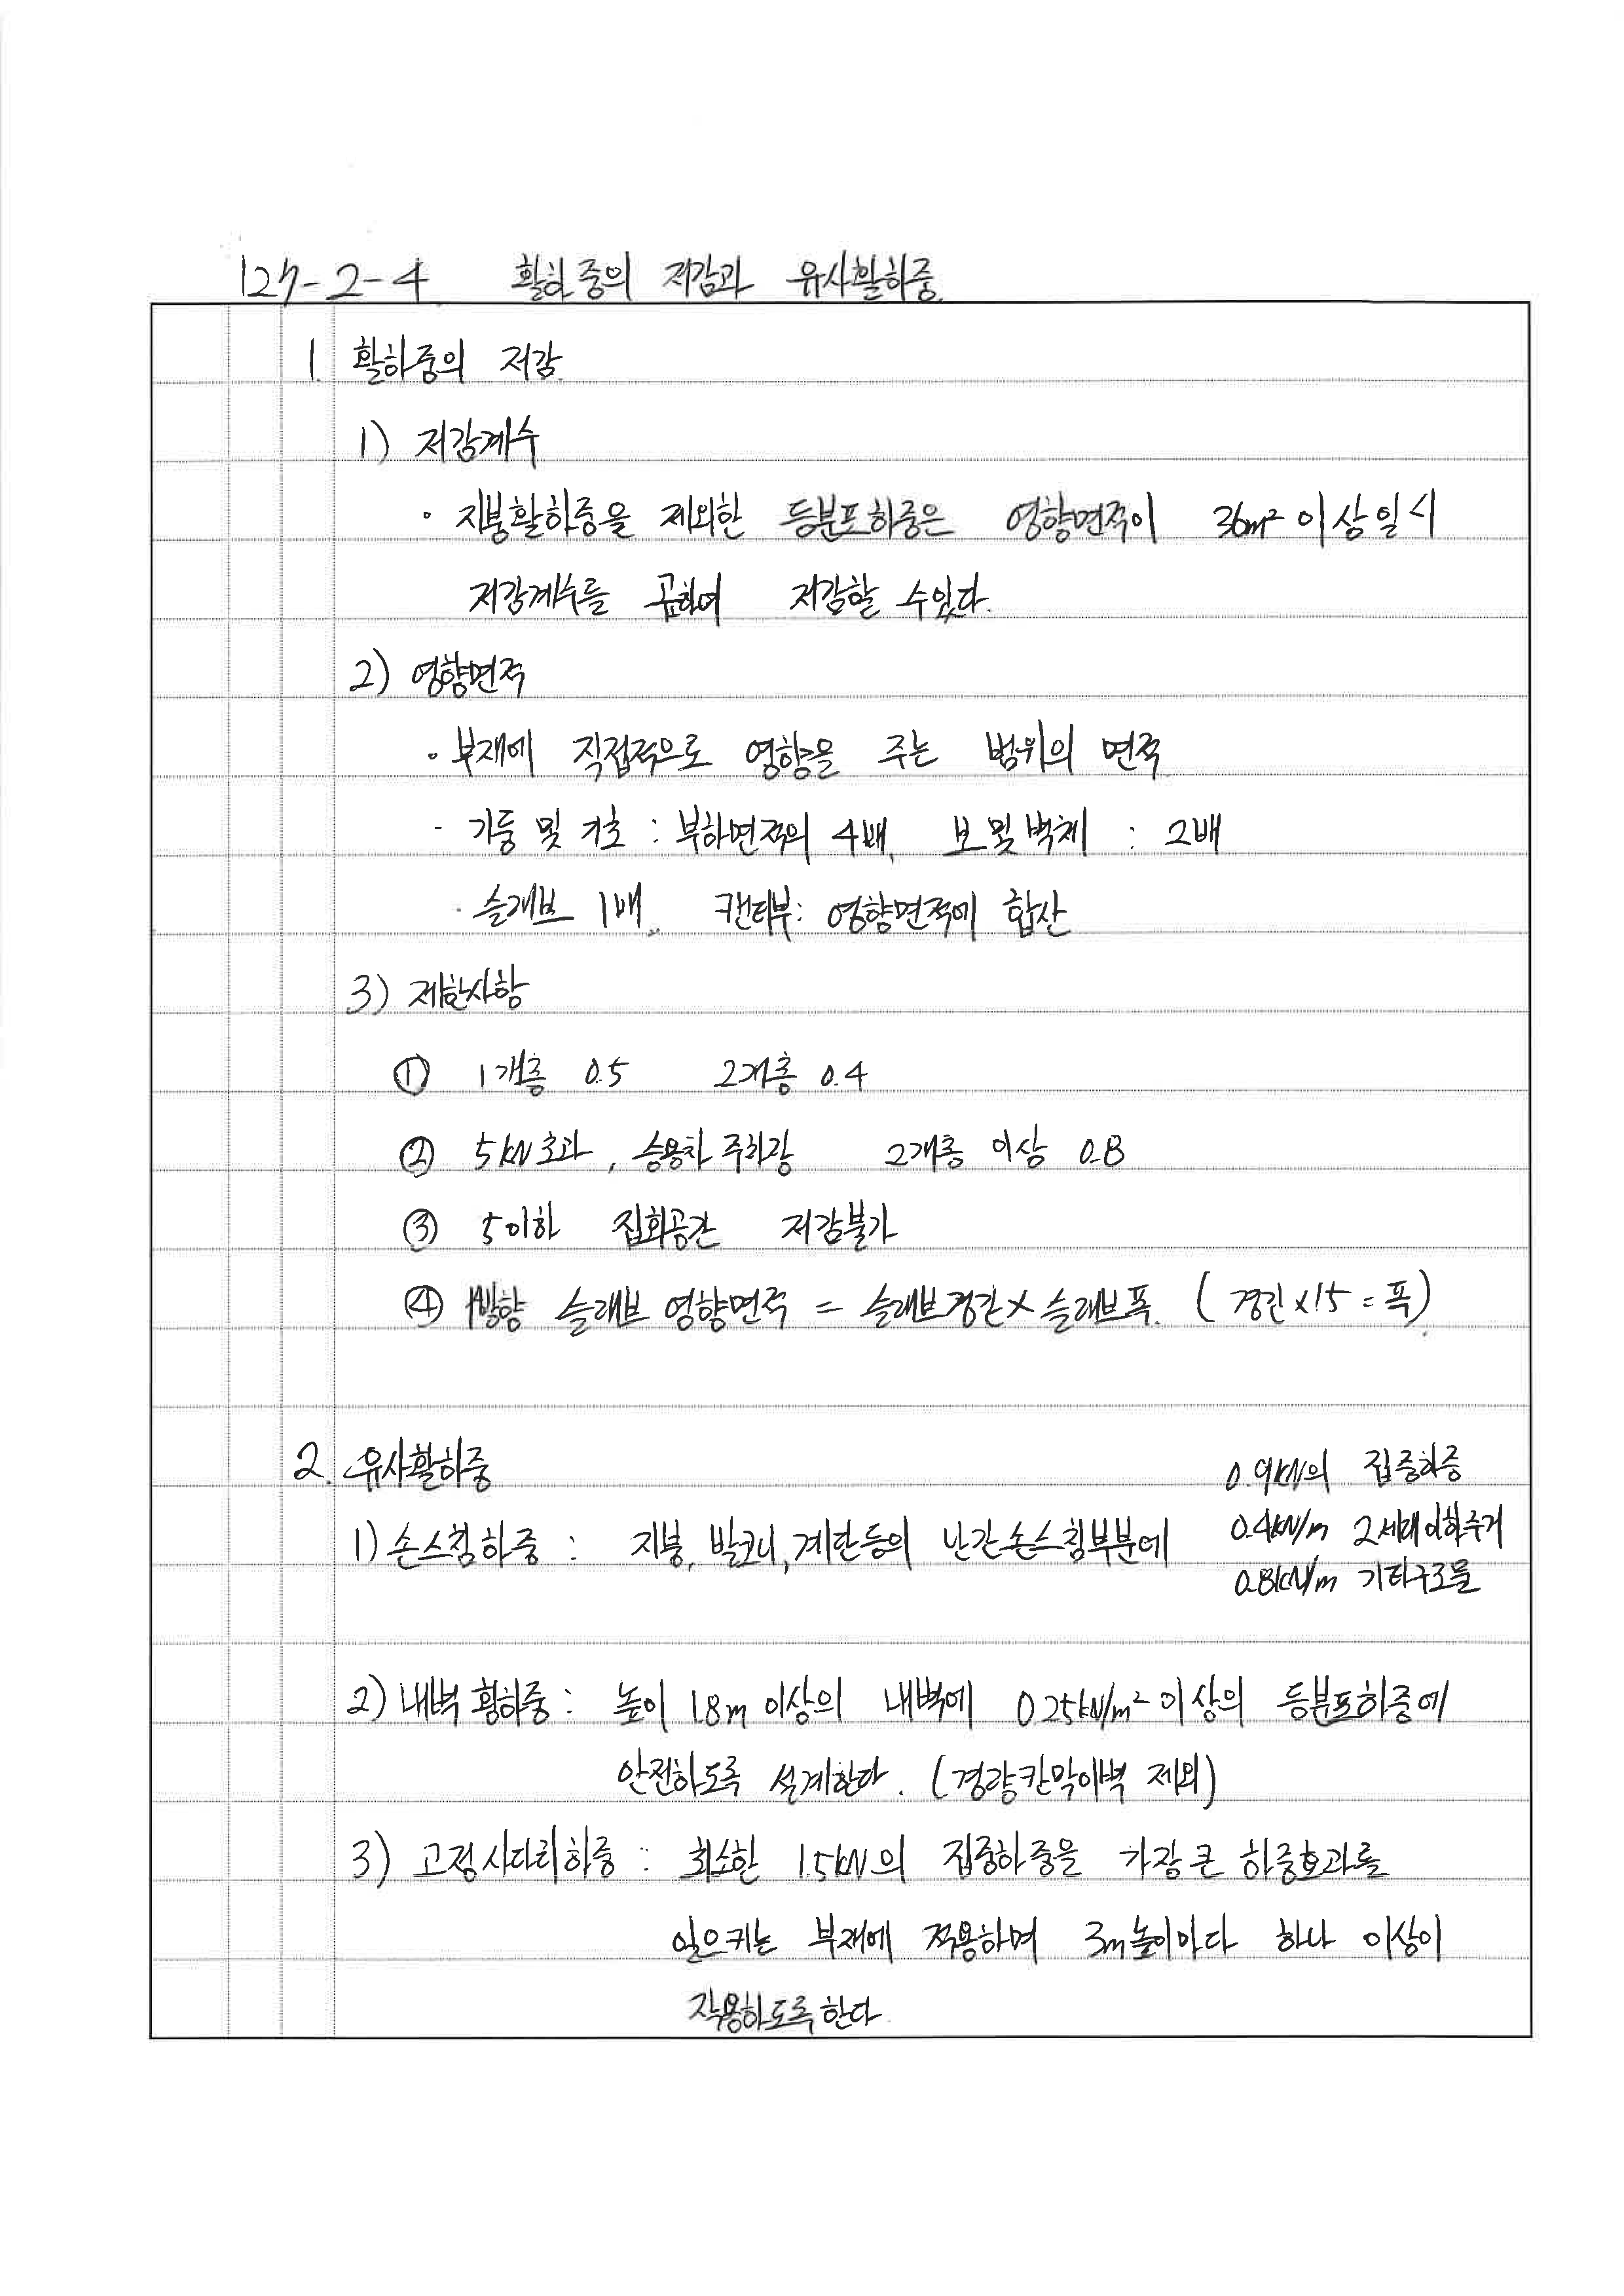 127-2-4 활하중의 저감과 유사활하중.
1. 활하중의 저감.
1) 저감계수
· 지붕활하중을 제외한 등분포하중은 영향면적이 36m² 이상일시
저감계수를 곱하여 저감할 수있다.
2) 영향면적
· 부재에 직접적으로 영향을 주는 범위의 면적
- 기둥 및 기초 : 부하면적의 4배, 보 및 벽체 : 2배
· 슬래브 1배, 캔티부: 영향면적에 합산
3) 제한사항
① 1개층 0.5 2개층 0.4
② 5kN초과, 승용차 주차장 2개층 이상 0.8
③ 5이하 집회공간 저감불가
④ 1방향 슬래브 영향면적 = 슬래브경간 × 슬래브폭. (경간×1.5 = 폭)
2. 유사활하중
1) 손스침하중 : 지붕, 발코니, 계단등의 난간손스침부분에
0.9kN의 집중하중
0.4kN/m 2세대이하주거
0.8kN/m 기타구조물
2) 내벽 횡하중 : 높이 1.8m 이상의 내벽에 0.25kN/m² 이상의 등분포하중에
안전하도록 설계한다. (경량칸막이벽 제외)
3) 고정사다리하중 : 최소한 1.5kN의 집중하중을 가장 큰 하중효과를
일으키는 부재에 적용하며 3m높이마다 하나 이상이
작용하도록한다.